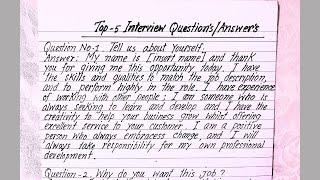 Top-5 Interview Question's/Answer's
Question No-1 Tell us about Yourself.
Answer: My name is [insert name] and thank
you for giving me this opportunity today. I have
the skills and qualities to match the job description,
and to perform highly in the role. I have experience
of working with other people; I am someone who is
always seeking to learn and develop and I have the
creativity to help your business grow whilst offering
excellent service to your customer. I am a positive
person who always embraces change and I will
always take responsibility for my own professional
development.
Question-2, Why do you want this job?